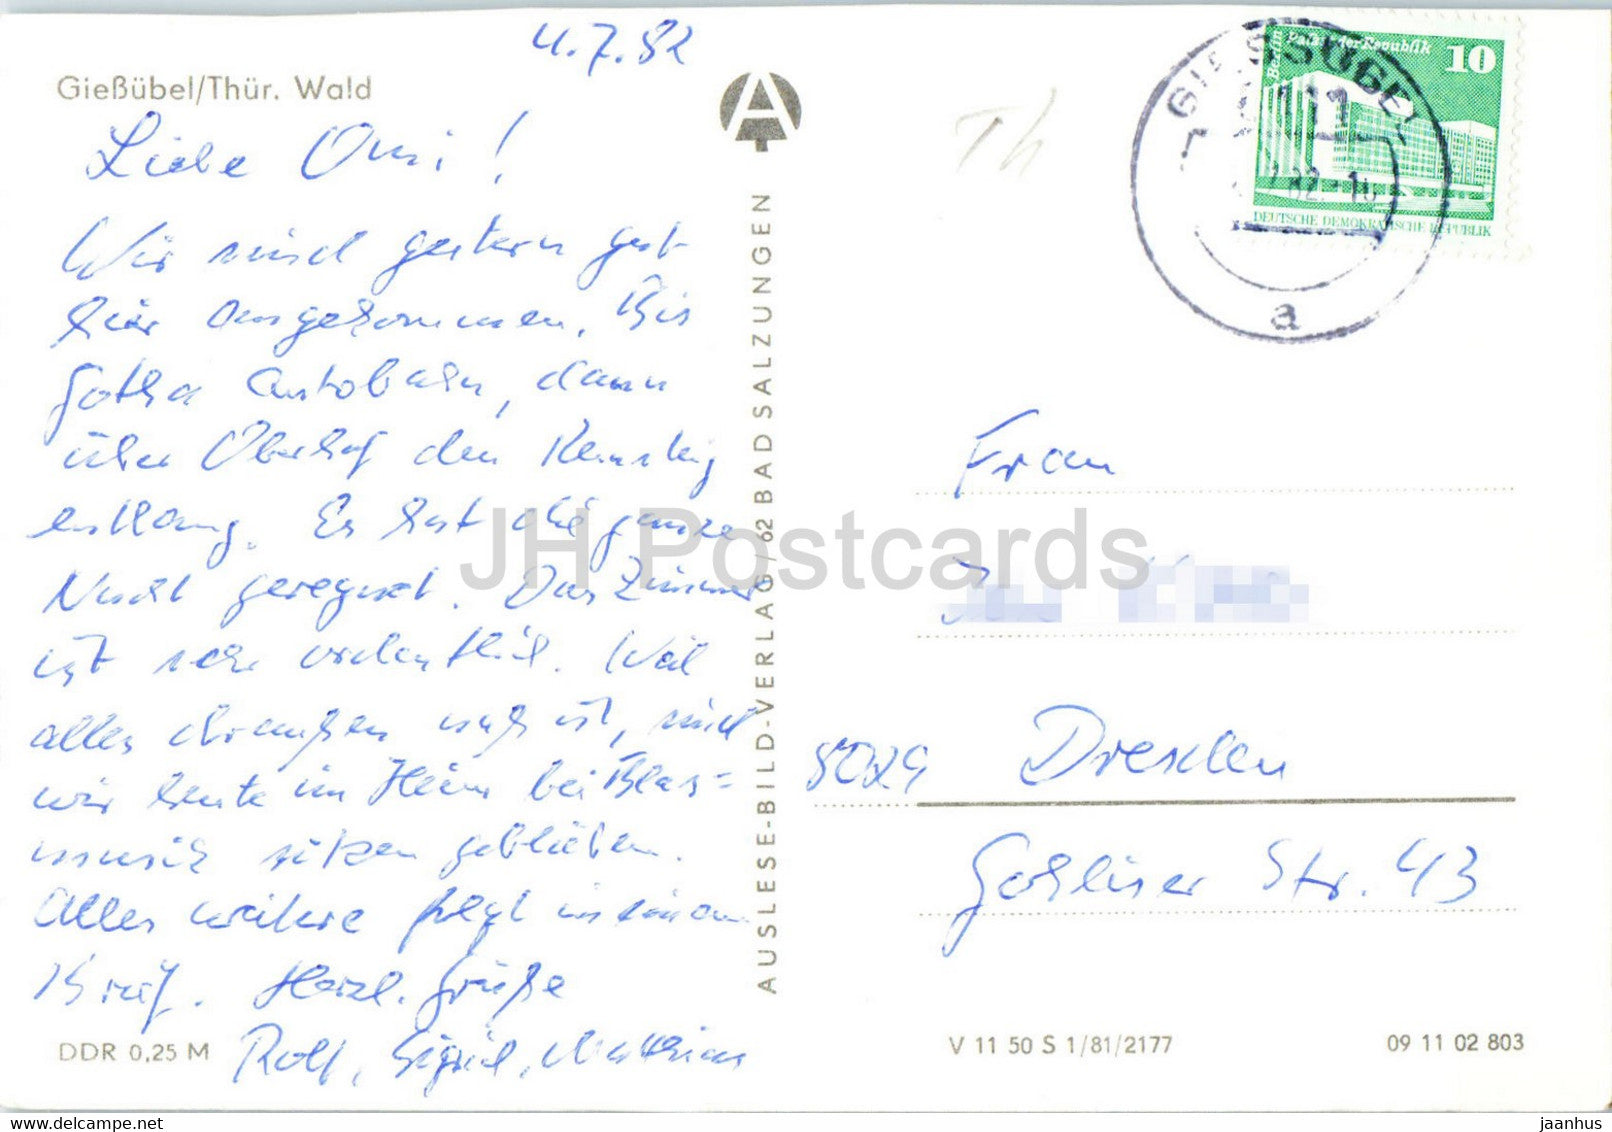 4.7.82
Gießübel/Thür. Wald
Liebe Omi!
Wir sind gestern gut
hier angekommen. Bis
Gotha Autobahn, dann
über Oberhof den Rennsteig
entlang. Es hat die ganze
Nacht geregnet. Das Zimmer
ist sehr ordentlich. Weil
alles draußen naß ist, sind
wir heute im Heim bei Blas=
musik sitzen geblieben.
Alles weitere folgt in einem
Brief. Herzl. Grüße
Rolf, Sigrid, Matthias
DDR 0,25 M
AUSLESE-BILD-VERLAG / 62 BAD SALZUNGEN
Th
GIESSÜBEL
82-1
a
Berlin Palast der Republik
10
DEUTSCHE DEMOKRATISCHE REPUBLIK
Frau
8029 Dresden
Gohliser Str. 43
V 11 50 S 1/81/2177
09 11 02 803
JH Postcards
delcampe.net
jaanhus